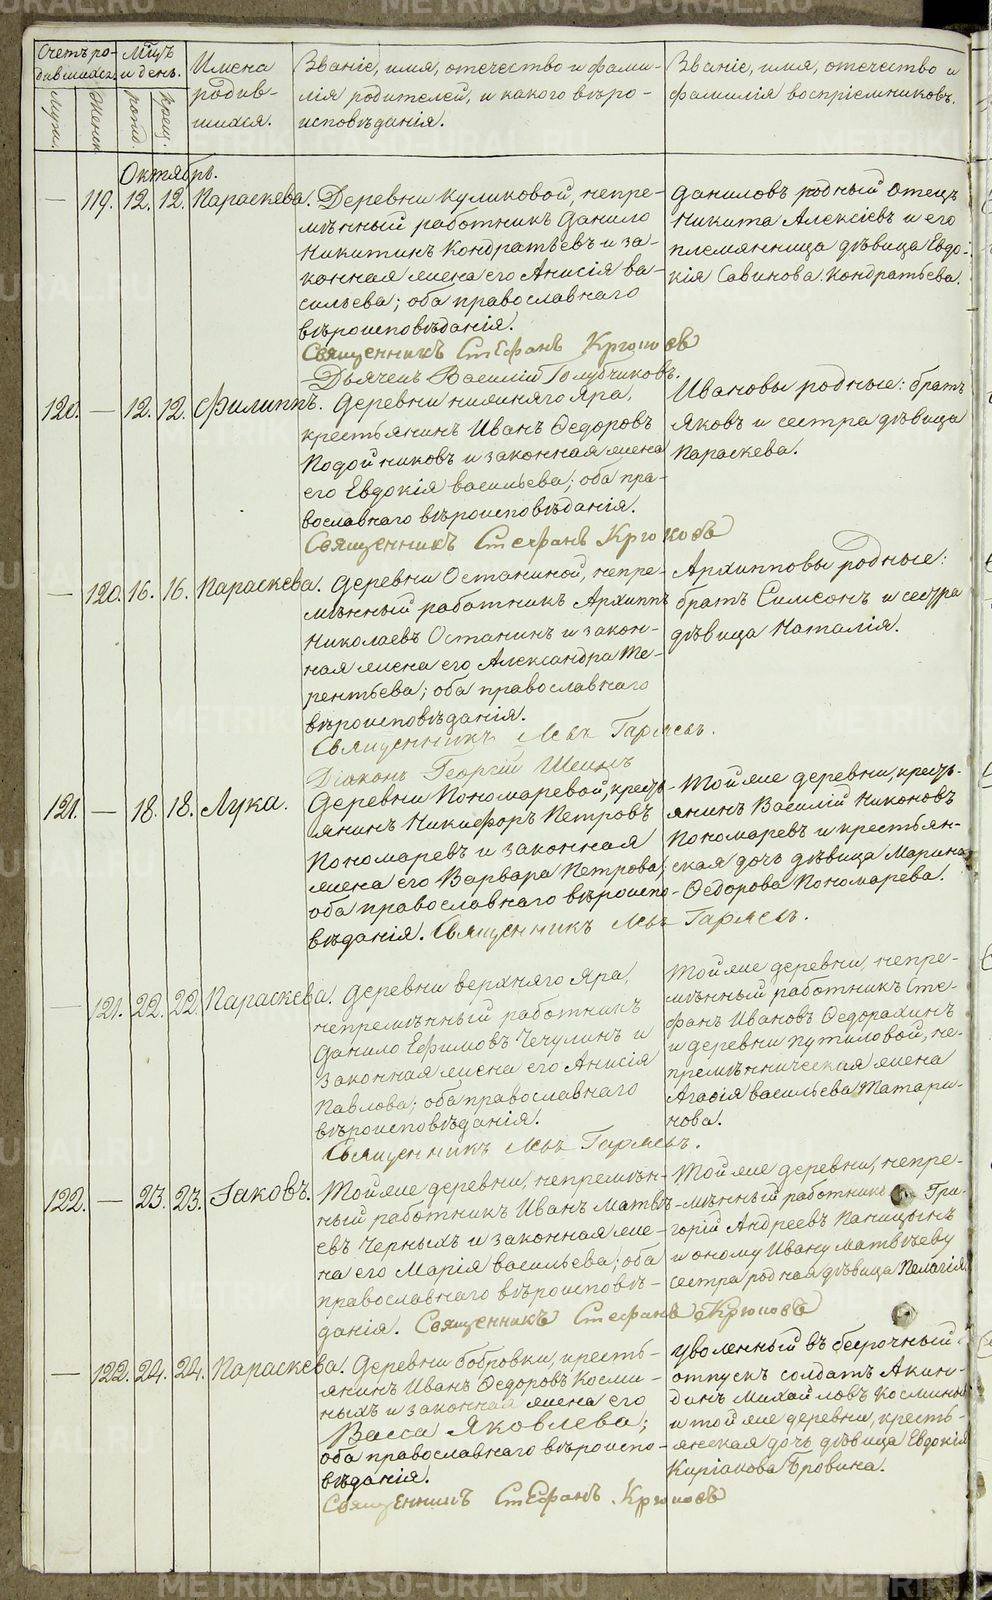 Счетъ ро-
дившихся.
Мѣцъ
и день.
Имена
родив-
шихся.
Званіе, имя, отечество и фами-
лія родителей, и какого вѣро-
исповѣданія.
Званіе, имя, отечество и
фамилія воспріемниковъ.
Муж.
Женск.
рожд.
крещ.
Октябрь.
— 119. 12. 12. Параскева.
Деревни Куликовой, непре-
мѣнный работникъ Данило
Никитинъ Кондратьевъ и за-
конная жена его Анисія Ва-
сильева; оба православнаго
вѣроисповѣданія.
Священникъ Стефанъ Крюковъ
Дьячекъ Василій Голубчиковъ.
Даниловъ родный отецъ
Никита Алексіевъ и его
племянница дѣвица Евдо-
кія Савинова Кондратьева.
120. — 12. 12. Филиппъ.
Деревни нижняго Яра,
крестьянинъ Иванъ Ѳедоровъ
Подойниковъ и законная жена
его Евдокія Васильева; оба пра-
вославнаго вѣроисповѣданія.
Священникъ Стефанъ Крюковъ
Ивановы родные: братъ
Яковъ и сестра дѣвица
Параскева.
— 120. 16. 16. Параскева.
Деревни Останиной, непре-
мѣнный работникъ Архиппъ
Николаевъ Останинъ и закон-
ная жена его Александра Те-
рентьева; оба православнаго
вѣроисповѣданія.
Священникъ Левъ Гаряевъ.
Діаконъ Георгій
Архипповы родные:
братъ Симеонъ и сестра
дѣвица Наталія.
121. — 18. 18. Лука.
Деревни Пономаревой, кресть-
янинъ Никифоръ Петровъ
Пономаревъ и законная
жена его Варвара Петрова;
оба православнаго вѣроиспо-
вѣданія. Священникъ Левъ Гаряевъ.
Той же деревни, кресть-
янинъ Василій Никоновъ
Пономаревъ и крестьян-
ская дочь дѣвица Марина
Ѳедорова Пономарева.
— 121. 22. 22. Параскева.
Деревни верхняго Яра,
непремѣнный работникъ
Данило Ефимовъ Чечулинъ и
законная жена его Анисія
Павлова; оба православнаго
вѣроисповѣданія.
Священникъ Левъ Гаряевъ.
Той же деревни, непре-
мѣнный работникъ Сте-
фанъ Ивановъ Ѳедорахинъ
и деревни Путиловой, не-
премѣнническая жена
Агафія Васильева Татари-
нова.
122. — 23. 23. Іаковъ.
Той же деревни, непремѣн-
ный работникъ Иванъ Матвѣ-
евъ Черныхъ и законная же-
на его Марія Васильева; оба
православнаго вѣроисповѣ-
данія. Священникъ Стефанъ Крюковъ
Той же деревни, непре-
мѣнный работникъ Гри-
горій Андреевъ Паницынъ
и оному Ивану Матвѣеву
сестра родная дѣвица Пелагія.
— 122. 24. 24. Параскева.
Деревни Бобровки, кресть-
янинъ Иванъ Ѳедоровъ Косми-
ныхъ и законная жена его
Васса Яковлева;
оба православнаго вѣроиспо-
вѣданія.
Священникъ Стефанъ Крюковъ
Уволенный въ безсрочный
отпускъ солдатъ Акин-
динъ Михайловъ Косминыхъ
и той же деревни, кресть-
янская дочь дѣвица Евдокія
Киріакова Бровина.
METRIKI.GASO-URAL.RU